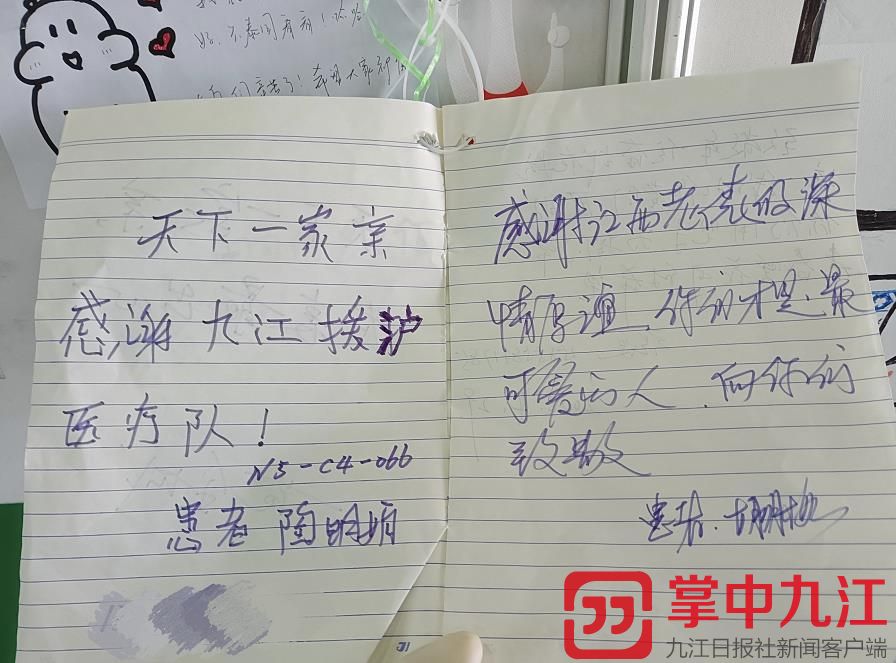 天下一家亲
感谢九江援沪
医疗队！
N5-C4-066
患者 陶明娟
感谢江西老表的深
情厚谊，你们才是最
可爱的人，向你们
致敬
患者.
掌中九江
九江日报社新闻客户端